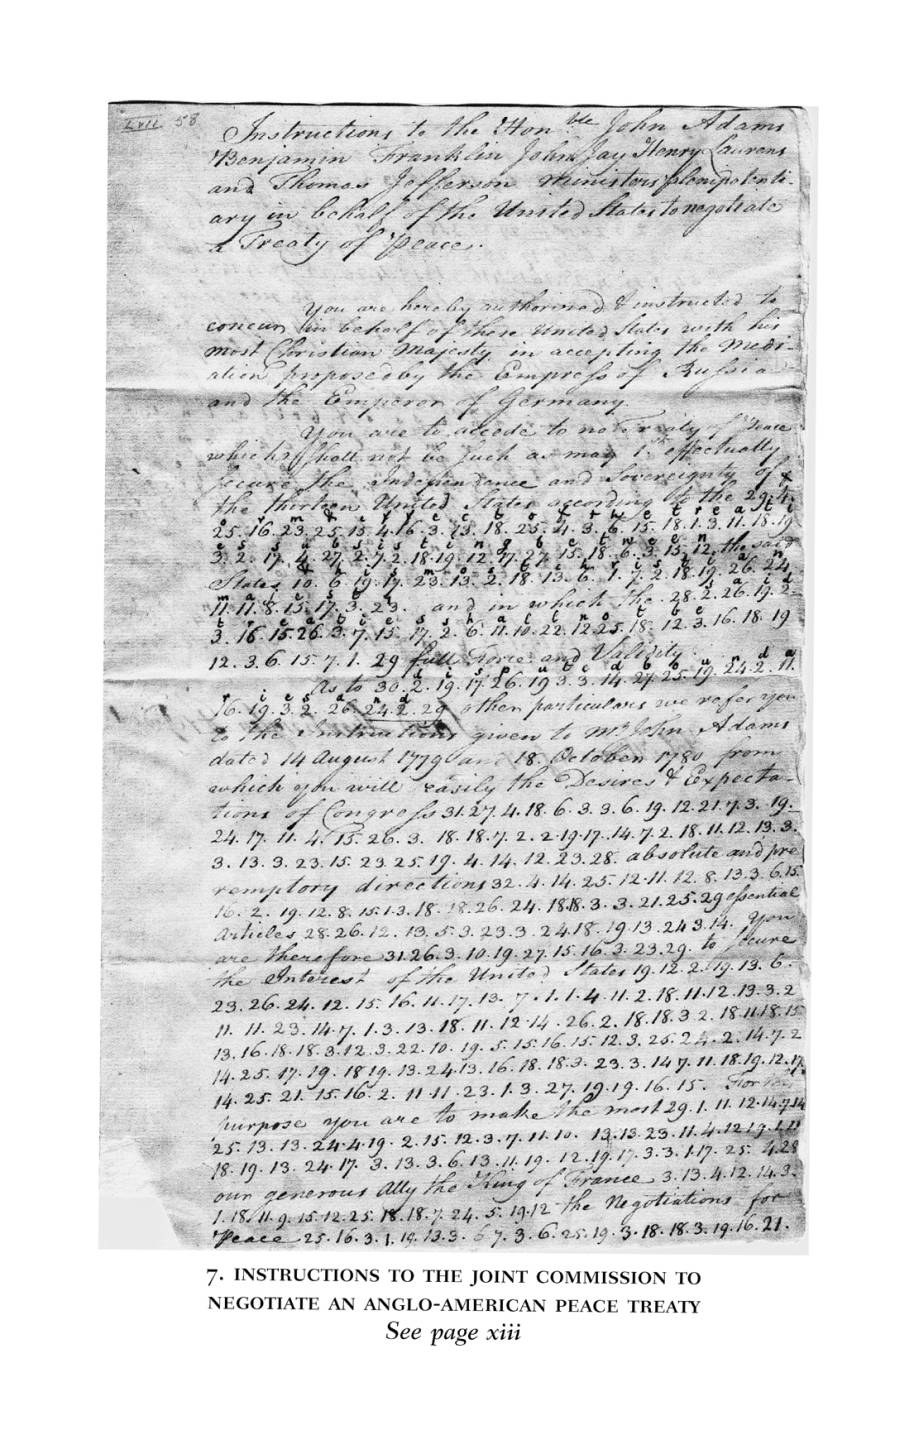 LVII. 58
Instructions to the Hon.ble John Adams
Benjamin Franklin John Jay Henry Laurens
and Thomas Jefferson ministers plenipotenti-
ary in behalf of the United States to negotiate
a Treaty of Peace.
You are hereby authorised & instructed to
concur in behalf of these United States with his
most Christian Majesty in accepting the Medi-
ation proposed by the Empress of Russia
and the Emperor of Germany.
You are to accede to no Treaty of Peace
which shall not be such as may 1st effectually
secure the Independance and Sovereignty of
the thirteen United States according to the 29.4.
o r m & e f f e c t o f t h e t r e a t i
25.16.23.25.15.4.16.3.13.18.25.4.3.6.15.18.1.3.11.18.19
e s s u b s i s t i n g b e t w e e n
3.2.17.4.27.2.7.2.18.19.12.17.27.15.18.6.3.15.12. the said
& h i s m o s t c h r i s t i a n
States 10.6.19.17.23.13.2.18.13.6.1.7.2.18.19.26.24
m a j e s t y s a i d
11.11.8.15.17.3.23. and in which the 28.2.26.19.2-
t r e a t i e s s h a l l n o t b e
3.16.15.26.3.7.15.17.2.6.11.10.22.12.25.18.12.3.16.18.19
12.3.6.15.7.1.29 full Force and Validity
d i s p u t e d b o u n d a
As to 30.2.19.17.26.19.3.3.14.27.25.19.24.2.11.
r i e s a n d
16.19.3.2.26.24.2.29 other particulars we refer you
to the Instructions given to Mr John Adams
dated 14 August 1779 and 18. October 1780 from
which you will easily the Desires & Expecta-
tions of Congress 31.27.4.18.6.3.3.6.19.12.21.7.3.19.-
24.17.11.4.15.26.3.18.18.7.2.2.19.17.14.7.2.18.11.12.13.3.
3.13.3.23.15.23.25.19.4.14.12.23.28. absolute and pre
remptory directions 32.4.14.25.12.11.12.8.13.3.6.15
16.2.19.12.8.15.1.3.18.18.26.24.18.18.3.3.21.25.29 essential
Articles 28.26.12.13.5.3.23.3.24.18.19.13.24.3.14. You
are therefore 31.26.3.10.19.27.15.16.3.23.29. to secure
the Interest of the United States 19.12.2.19.13.6.
23.26.24.12.15.16.11.17.13.7.1.1.4.11.2.18.11.12.13.3.2
11.11.23.14.7.1.3.13.18.11.12.14.26.2.18.18.3.2.18.11.18.15
13.16.18.18.3.12.3.22.10.19.5.15.16.15.12.3.25.24.2.14.7.2
14.25.17.19.18.19.13.24.13.16.18.18.3.23.3.14.7.11.18.19.12.17
14.25.21.15.16.2.11.11.23.1.3.27.19.19.16.15. For this
purpose you are to make the most 29.1.11.12.14.7.14
25.13.13.24.4.19.2.15.12.3.7.11.10.13.13.23.11.4.12.19.1.11
18.19.13.24.17.3.13.3.6.13.11.19.12.19.17.3.3.1.17.25.4.28
our generous Ally the King of France 3.13.4.12.14.3.
1.18.11.9.15.12.25.18.18.7.24.5.19.12 the Negotiations for
Peace 25.16.3.1.19.13.3.6.7.3.6.25.19.3.18.18.3.19.16.21.
7. INSTRUCTIONS TO THE JOINT COMMISSION TO
NEGOTIATE AN ANGLO-AMERICAN PEACE TREATY
See page xiii